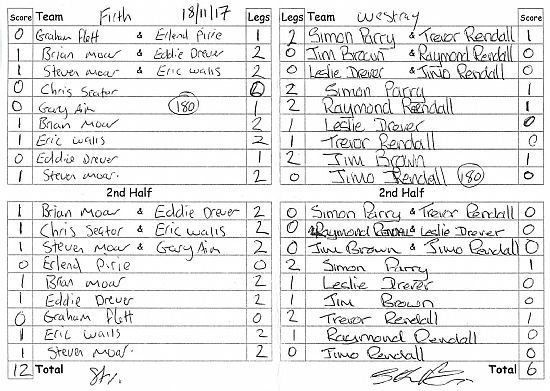 Score Team Firth 18/11/17 Legs Legs Team Westray Score
0 Graham Flett & Erlend Pirie 1 2 Simon Parry & Trevor Rendall 1
1 Brian Moar & Eddie Drever 2 0 Jim Brown & Raymond Rendall 0
1 Steven Moar & Eric Walls 2 0 Leslie Drever & Jimo Rendall 0
0 Chris Seator 0 2 Simon Parry 1
0 Gary Aim 180 1 2 Raymond Rendall 1
1 Brian Moar 2 1 Leslie Drever 0
1 Eric Walls 2 1 Trevor Rendall 0
0 Eddie Drever 1 2 Jim Brown 1
1 Steven Moar. 2 0 Jimo Rendall 180 0
2nd Half 2nd Half
1 Brian Moar & Eddie Drever 2 0 Simon Parry & Trevor Rendall 0
1 Chris Seator & Eric Walls 2 0 Raymond Rendall & Leslie Drever 0
1 Steven Moar & Gary Aim 2 0 Jim Brown & Jimo Rendall 0
0 Erlend Pirie 0 2 Simon Parry 1
1 Brian Moar 2 1 Leslie Drever 0
1 Eddie Drever 2 1 Jim Brown 0
0 Graham Flett 0 2 Trevor Rendall 1
1 Eric Walls 2 1 Raymond Rendall 0
1 Steven Moar. 2 0 Jimo Rendall 0
12 Total Total 6